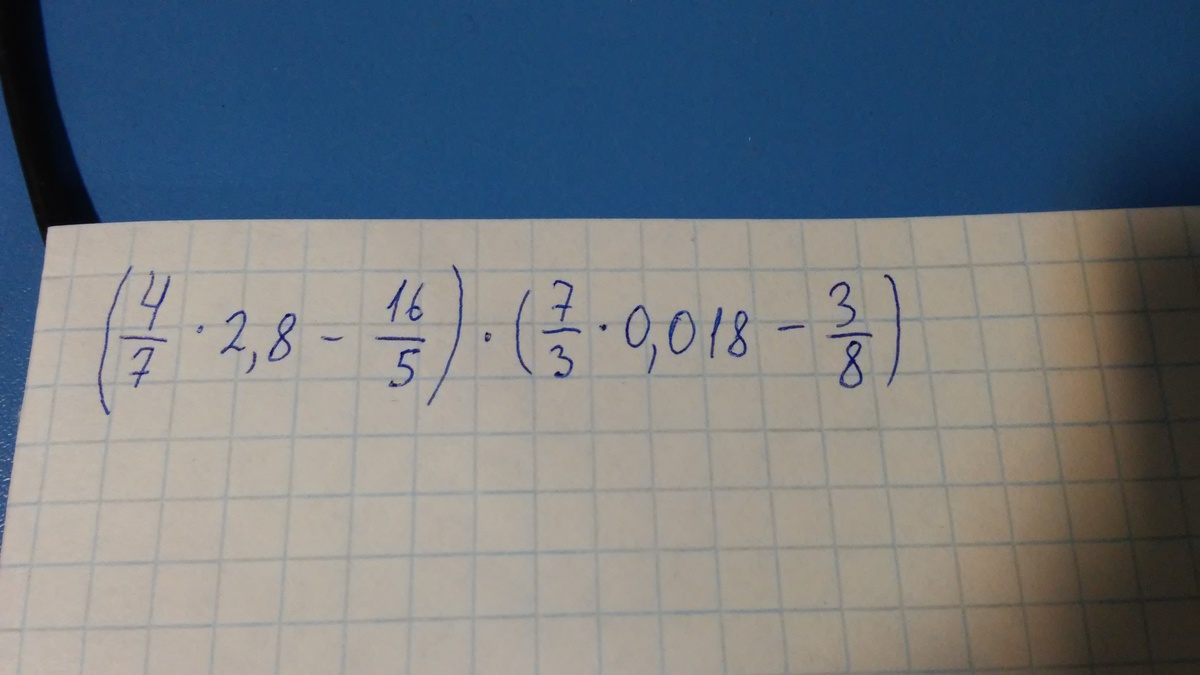 (4/7 · 2,8 - 16/5) · (7/3 · 0,018 - 3/8)